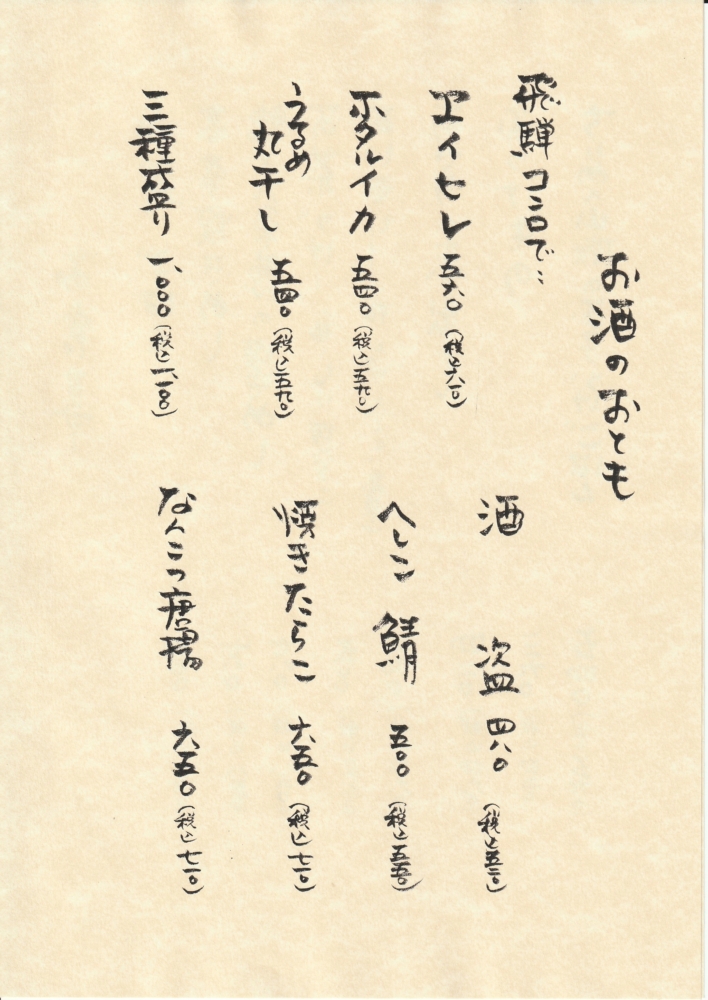 お酒のおとも
飛騨コンロで…
エイヒレ 五六〇（税込六一〇）
ホタルイカ 五四〇（税込五九〇）
うるめ
丸干し 五四〇（税込五九〇）
三種盛り 一、〇〇〇（税込一、一〇〇）
酒 盗 四八〇（税込五二〇）
へしこ 鯖 五〇〇（税込五五〇）
焼きたらこ 六五〇（税込七一〇）
なんこつ唐揚 六五〇（税込七一〇）